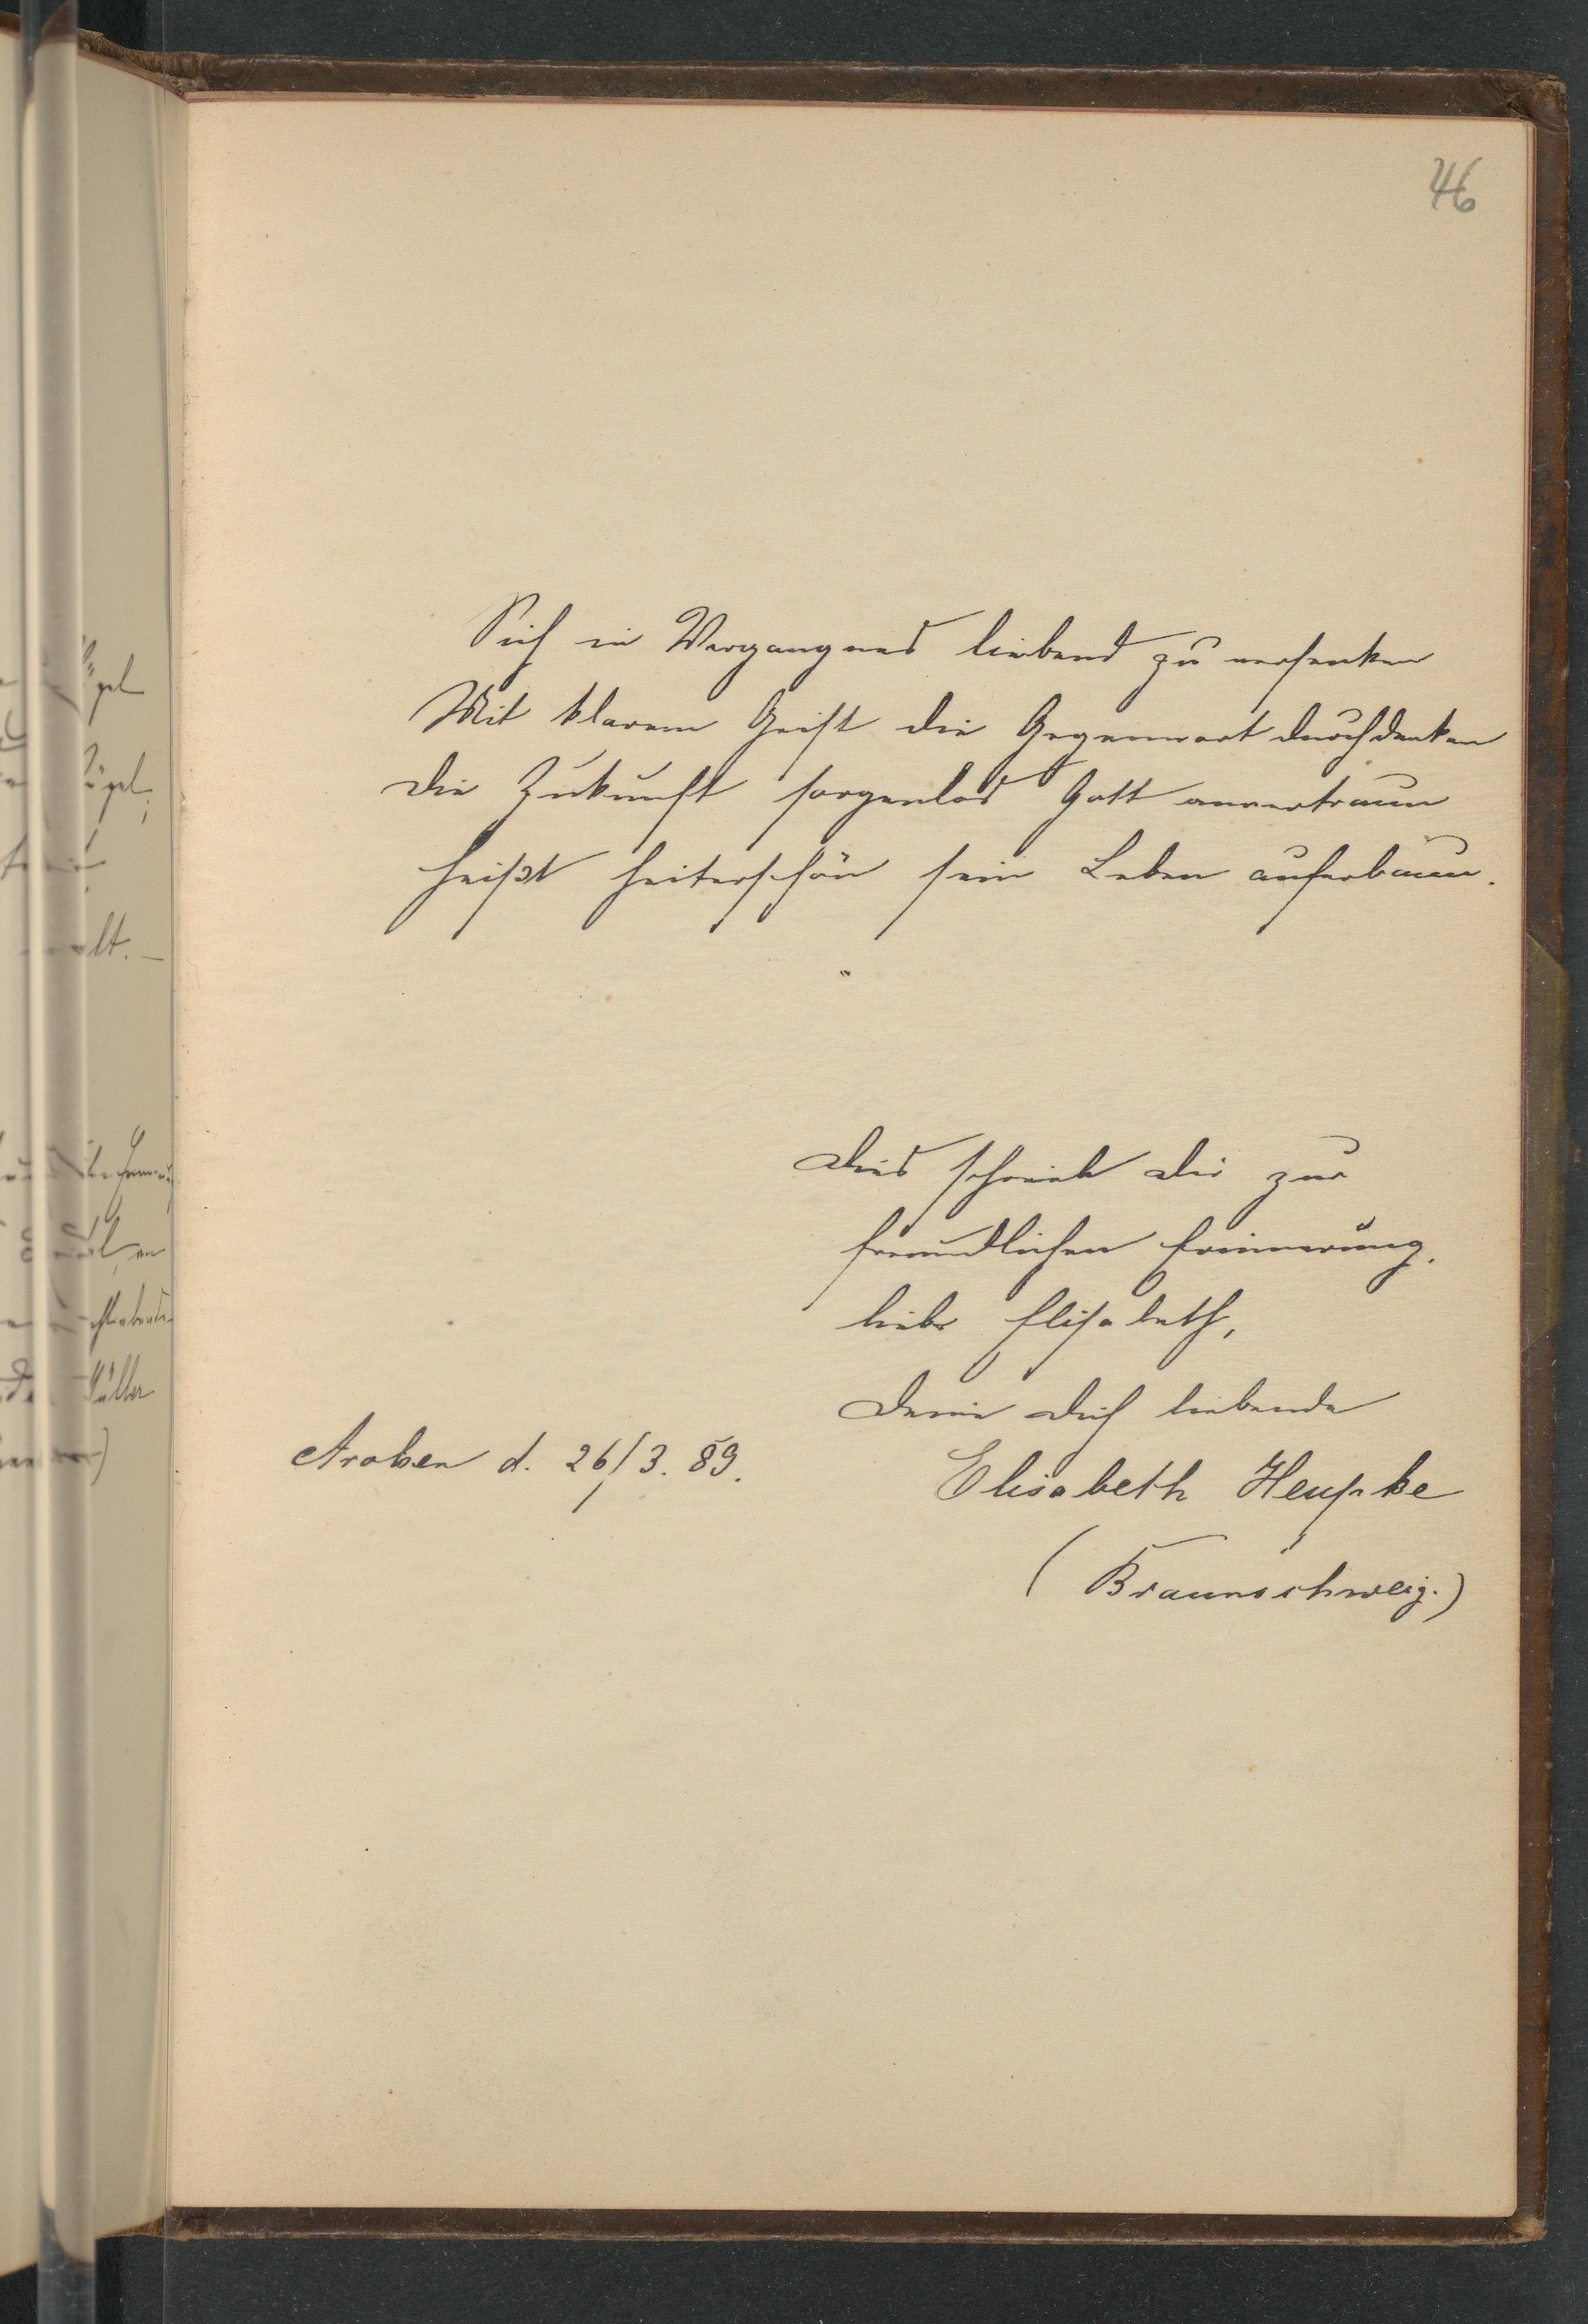 46
Sich in Vergangnes liebend zu versenken
Mit klarem Geist die Gegenwart durchdenken
Die Zukunft sorgenlos Gott anvertraun
heißt heiterschön sein Leben auferbaun.
Dies schrieb dir zur
freundlichen Erinnerung.
liebe Elisabeth,
Deine dich liebende
Arolsen d. 26/3. 89.
Elisabeth
(Braunschweig.)